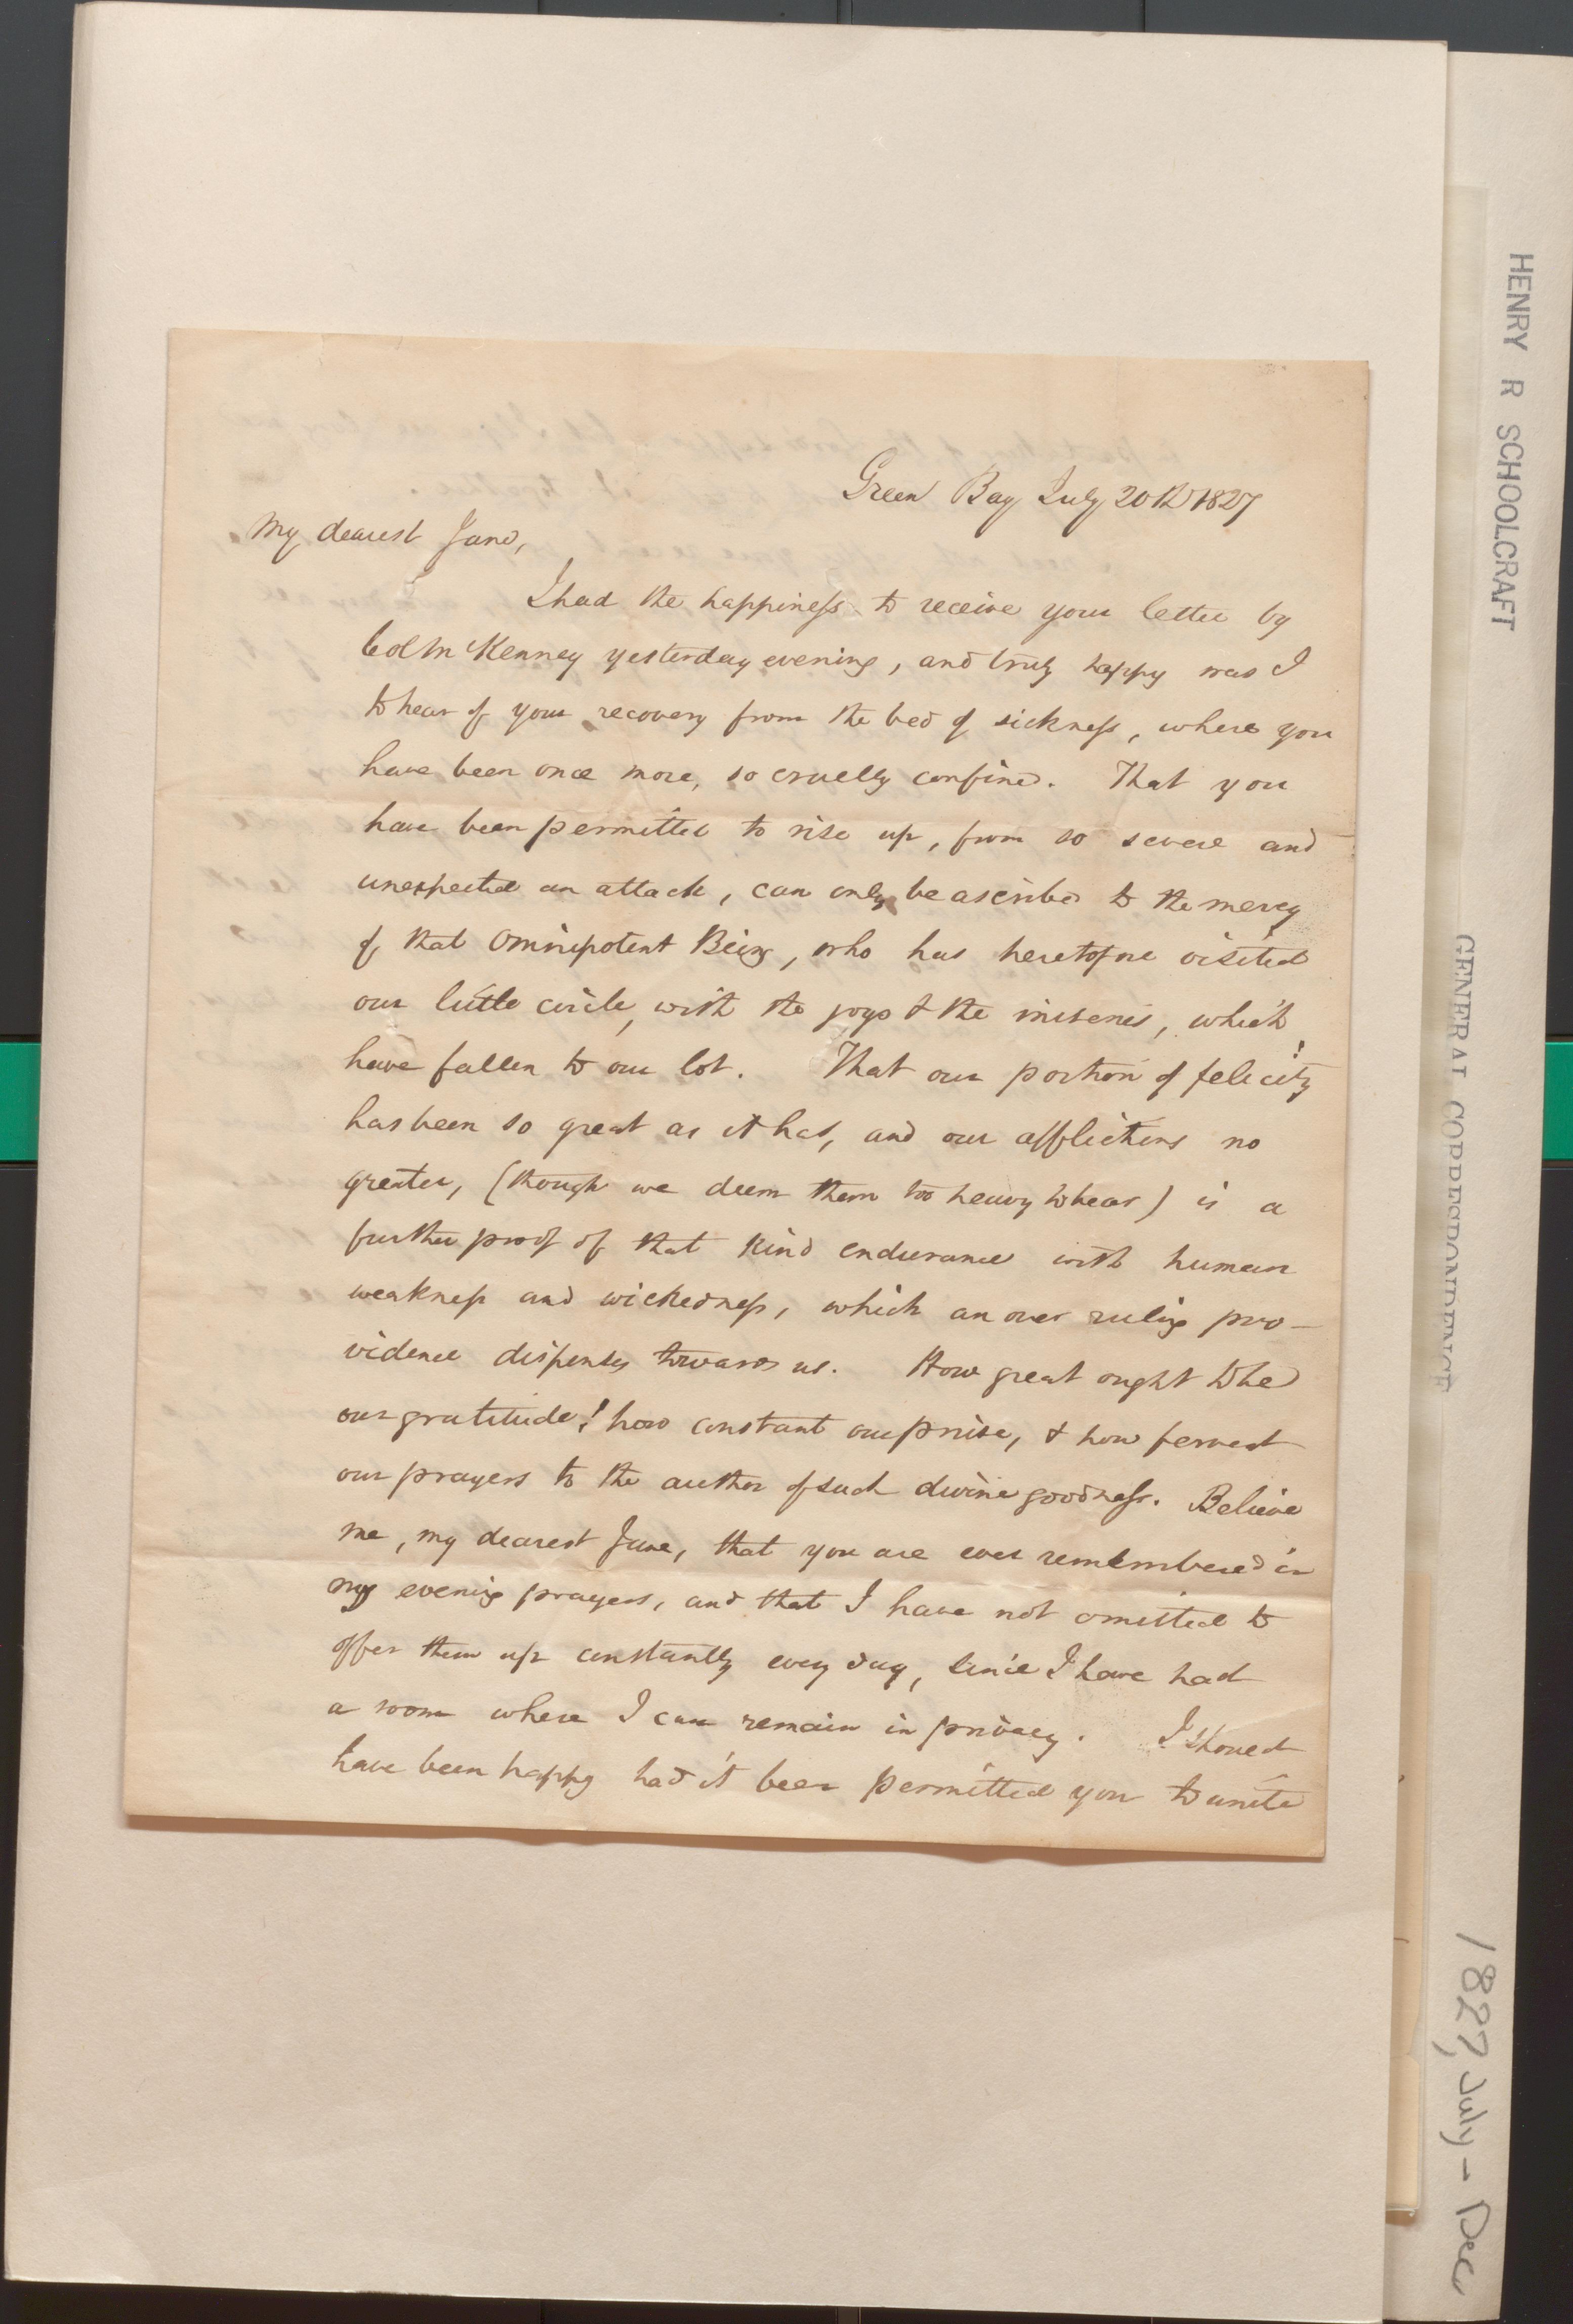 Green Bay July 20th 1827
My dearest Jane,
I had the happiness to receive your letter by
Col McKenney yesterday evening, and truly happy was I
to hear of your recovery from the bed of sickness, where you
have been once more, so cruelly confined. That you
have been permitted to rise up, from so severe and
unexpected an attack, can only be ascribed to the mercy
of that Omnipotent Being, who has heretofore visited
our little circle, with the joys & the miseries, which
have fallen to our lot. That our portion of felicity
has been so great as it has, and our afflictions no
greater, (though we deem them too heavy to bear) is a
further proof of that kind endurance with human
weakness and wickedness, which an over ruling pro-
vidence dispenses towards us. How great ought to be
our gratitude! how constant our praise, & how fervent
our prayers to the author of such divine goodness. Believe
me, my dearest Jane, that you are ever remembered in
my evening prayers, and that I have not omitted to
offer them up constantly every day, since I have had
a room where I can remain in privacy. I should
have been happy had it been permitted you to unite
HENRY R SCHOOLCRAFT
GENERAL CORRESPONDENCE
1827, July - Dec.